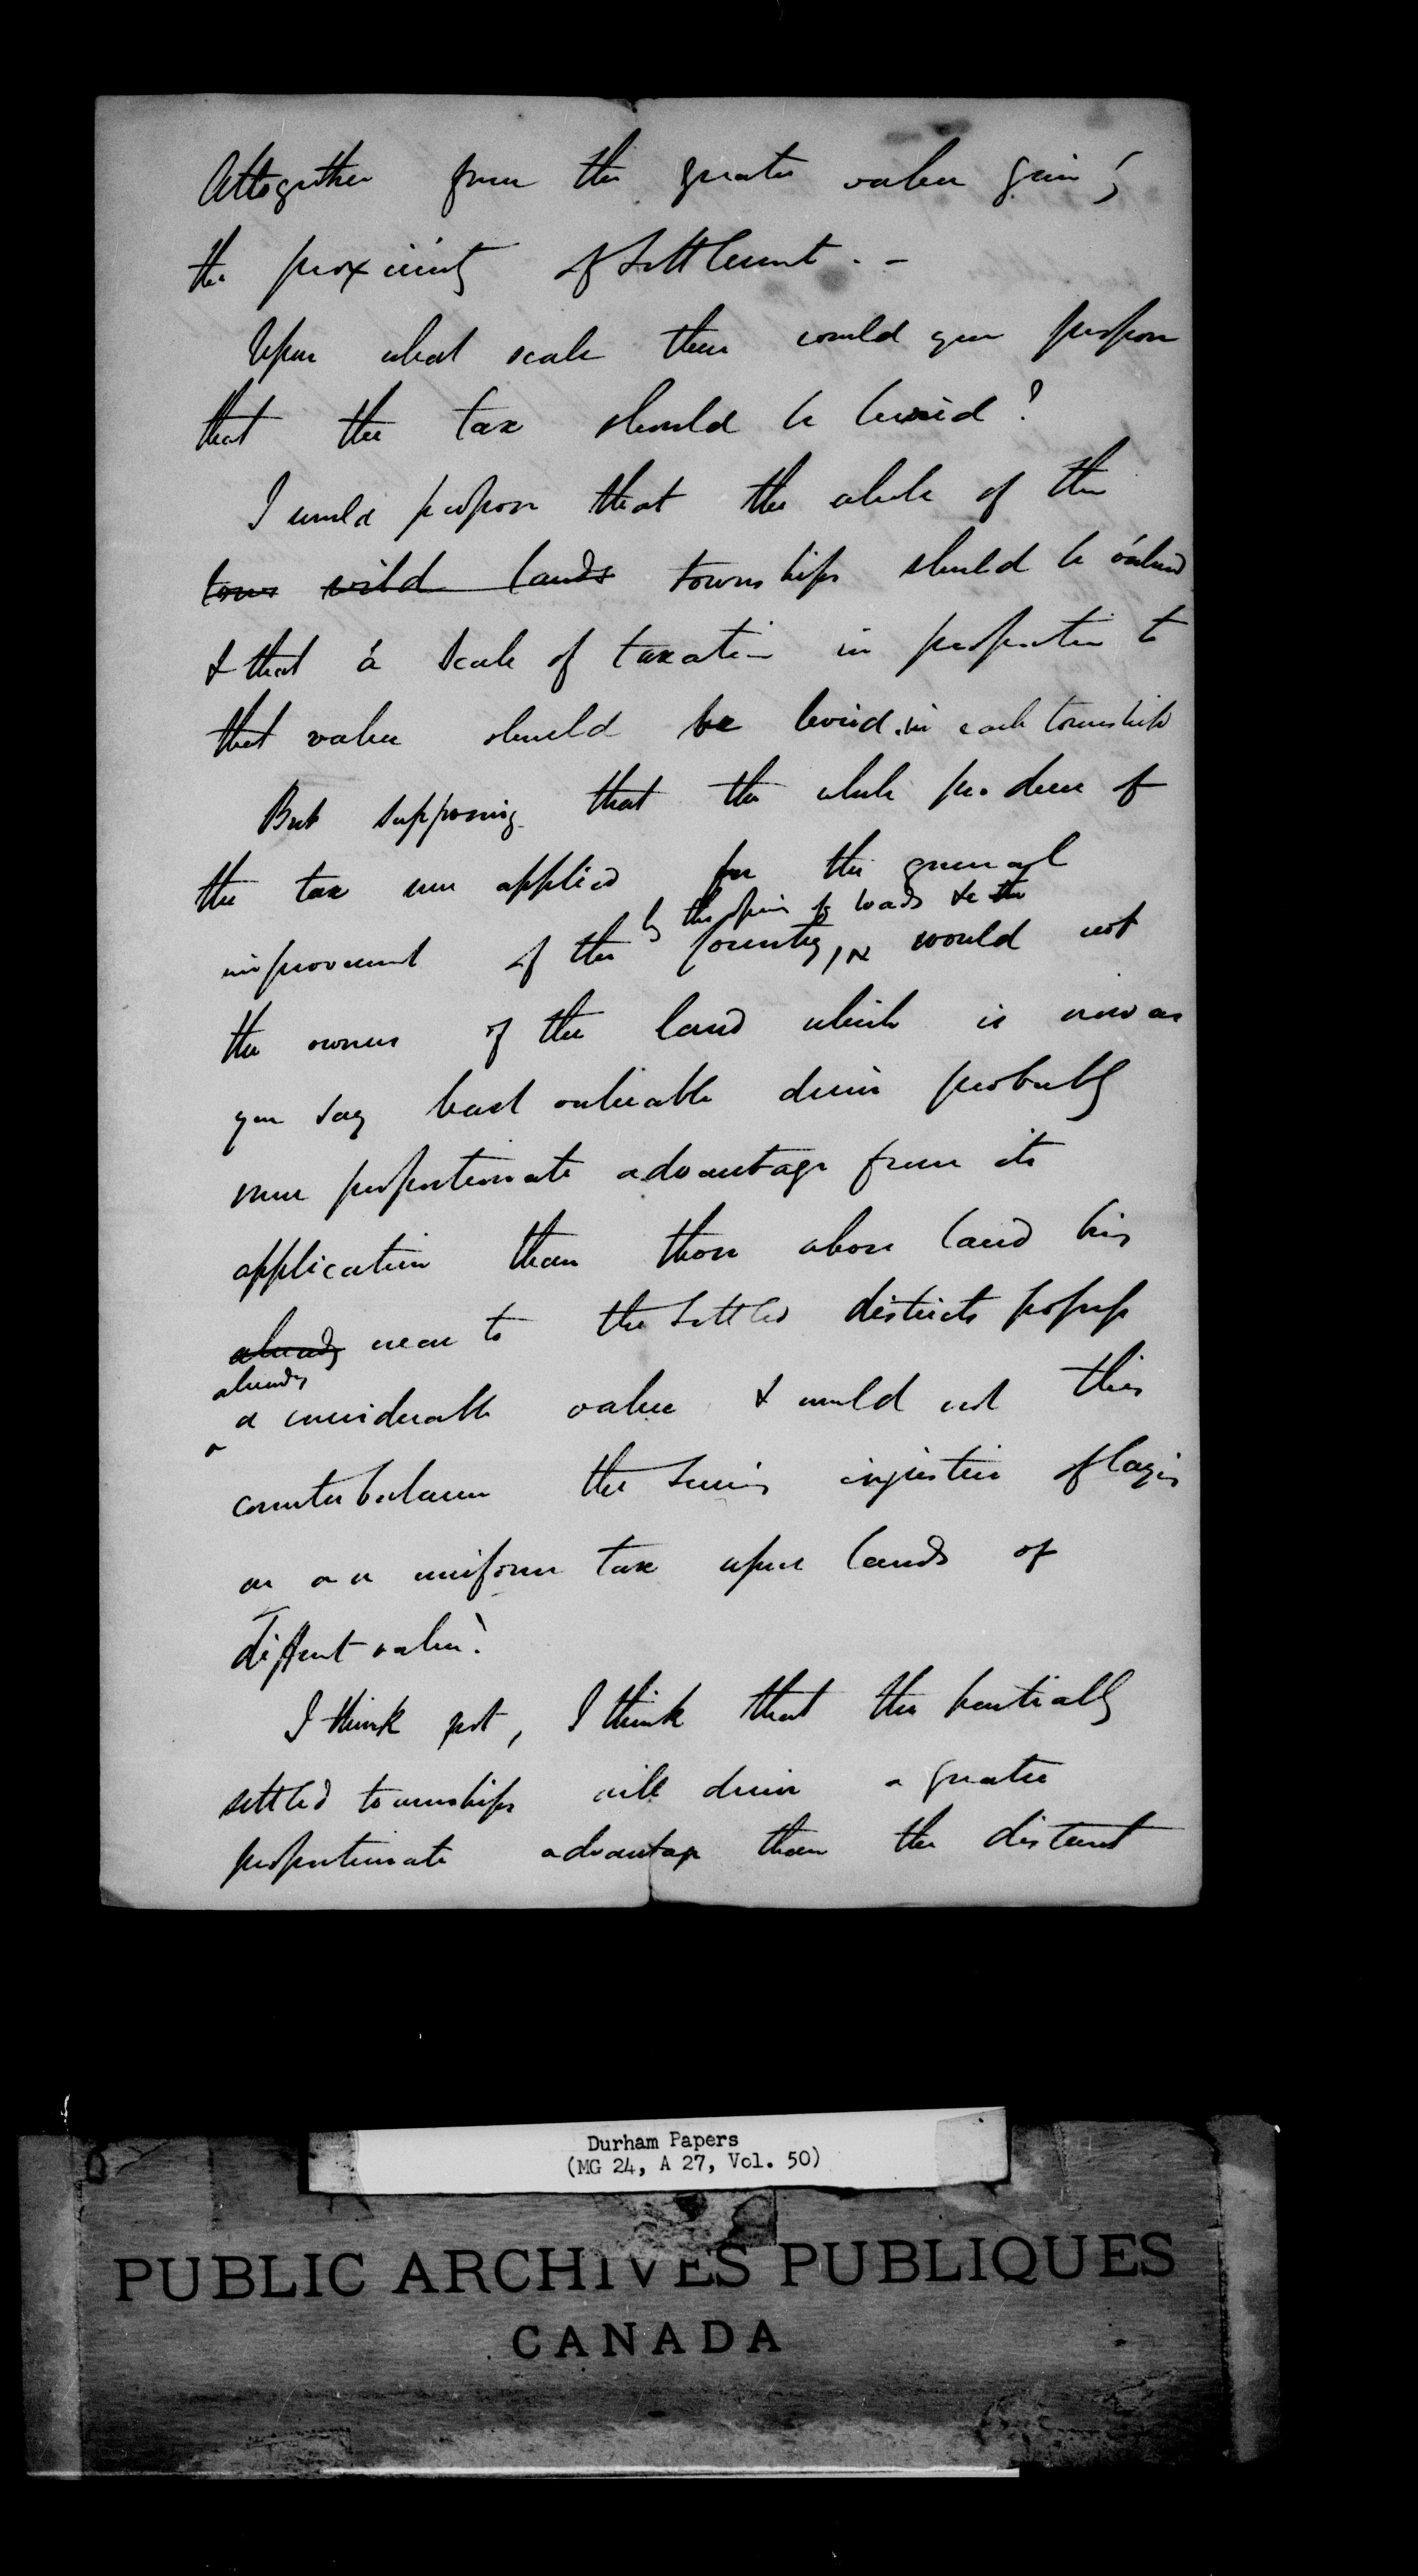 Altogether from the greater value given by
the proximity of settlement. -
Upon what scale then would you propose
that the tax should be levied?
I would propose that the whole of the
town wild lands townships should be valued
& that a scale of taxation in proportion to
that value should be levied in each township
But supposing that the whole produce of
the tax were applied for the general
by the opening of roads &c the
improvement of the Country, would not
the owner of the land which is now as
you say least valuable derive probably
more proportionate advantage from its
application than those whose land being
already near to the settled districts possess
already
a considerable value & would not this
counterbalance the seeming injustice of laying
on an uniform tax upon lands of
different value?
I think not, I think that the partially
settled townships will derive a greater
proportionate advantage than the distant
Durham Papers
(MG 24, A 27, Vol. 50)
PUBLIC ARCHIVES PUBLIQUES
CANADA